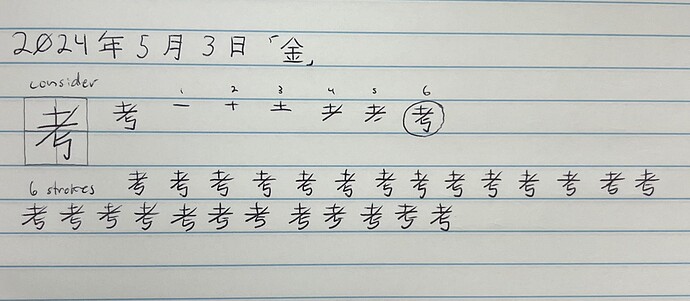 2024年5月3日「金」
consider
1 2 3 4 5 6
考 考 一 十 土 耂 考
6 strokes 考 考 考 考 考 考 考 考 考 考 考 考 考 考
考 考 考 考 考 考 考 考 考 考 考 考